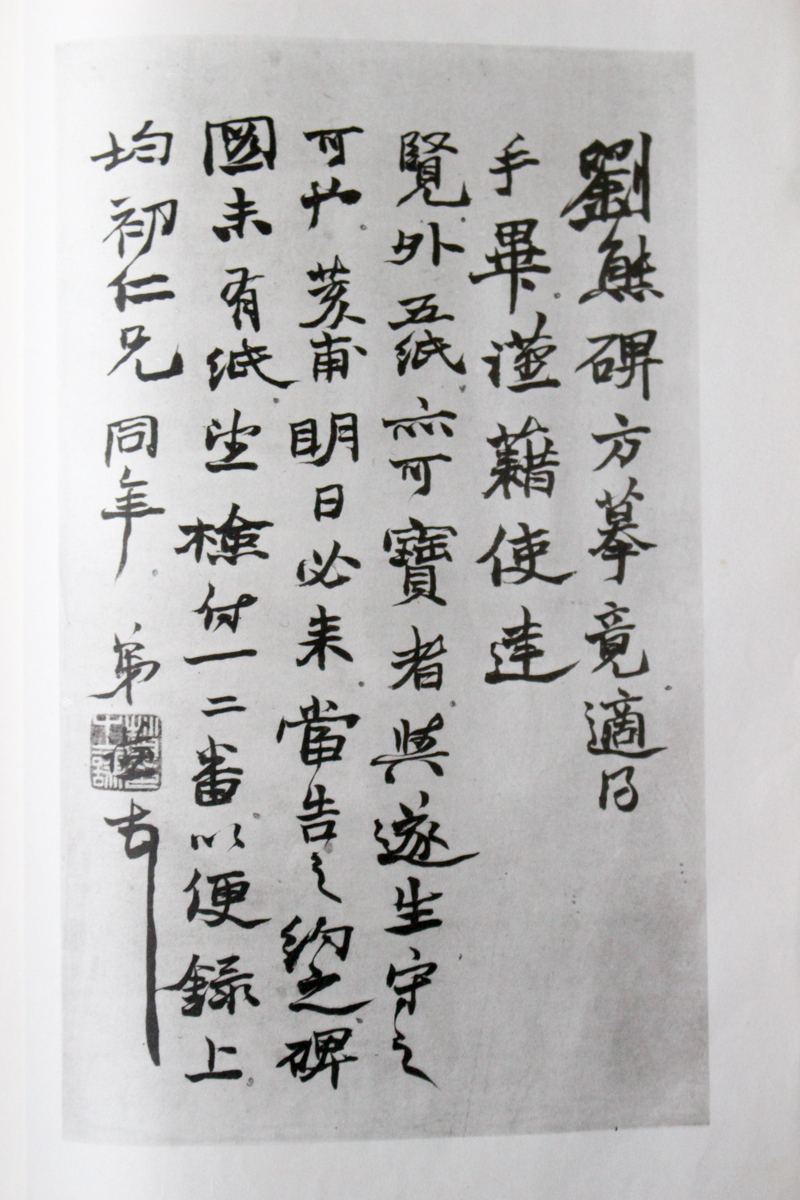 劉熊碑方摹竟適得
手畢謹藉使達
覽外五紙亦可寶者與遂生守之
可也荄甫明日必來當告之約之碑
圖未有紙望檢付一二番以便錄上
均初仁兄同年弟